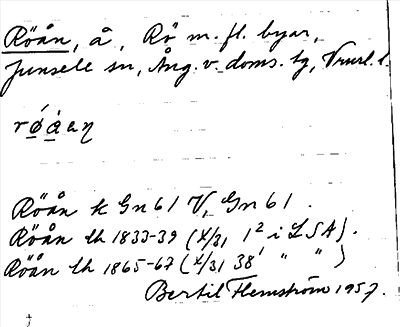 Röån, å, Rö m. fl. byar,
Junsele sn, Ång. v. doms. tg, Vrurl. l.
röaŋ
Röån k Gn 61 V, Gn 61.
Röån lh 1833-39 (X/31 1² i LSA).
Röån lh 1865-67 (X/31 38' " ")
Bertil Flemström 1957.